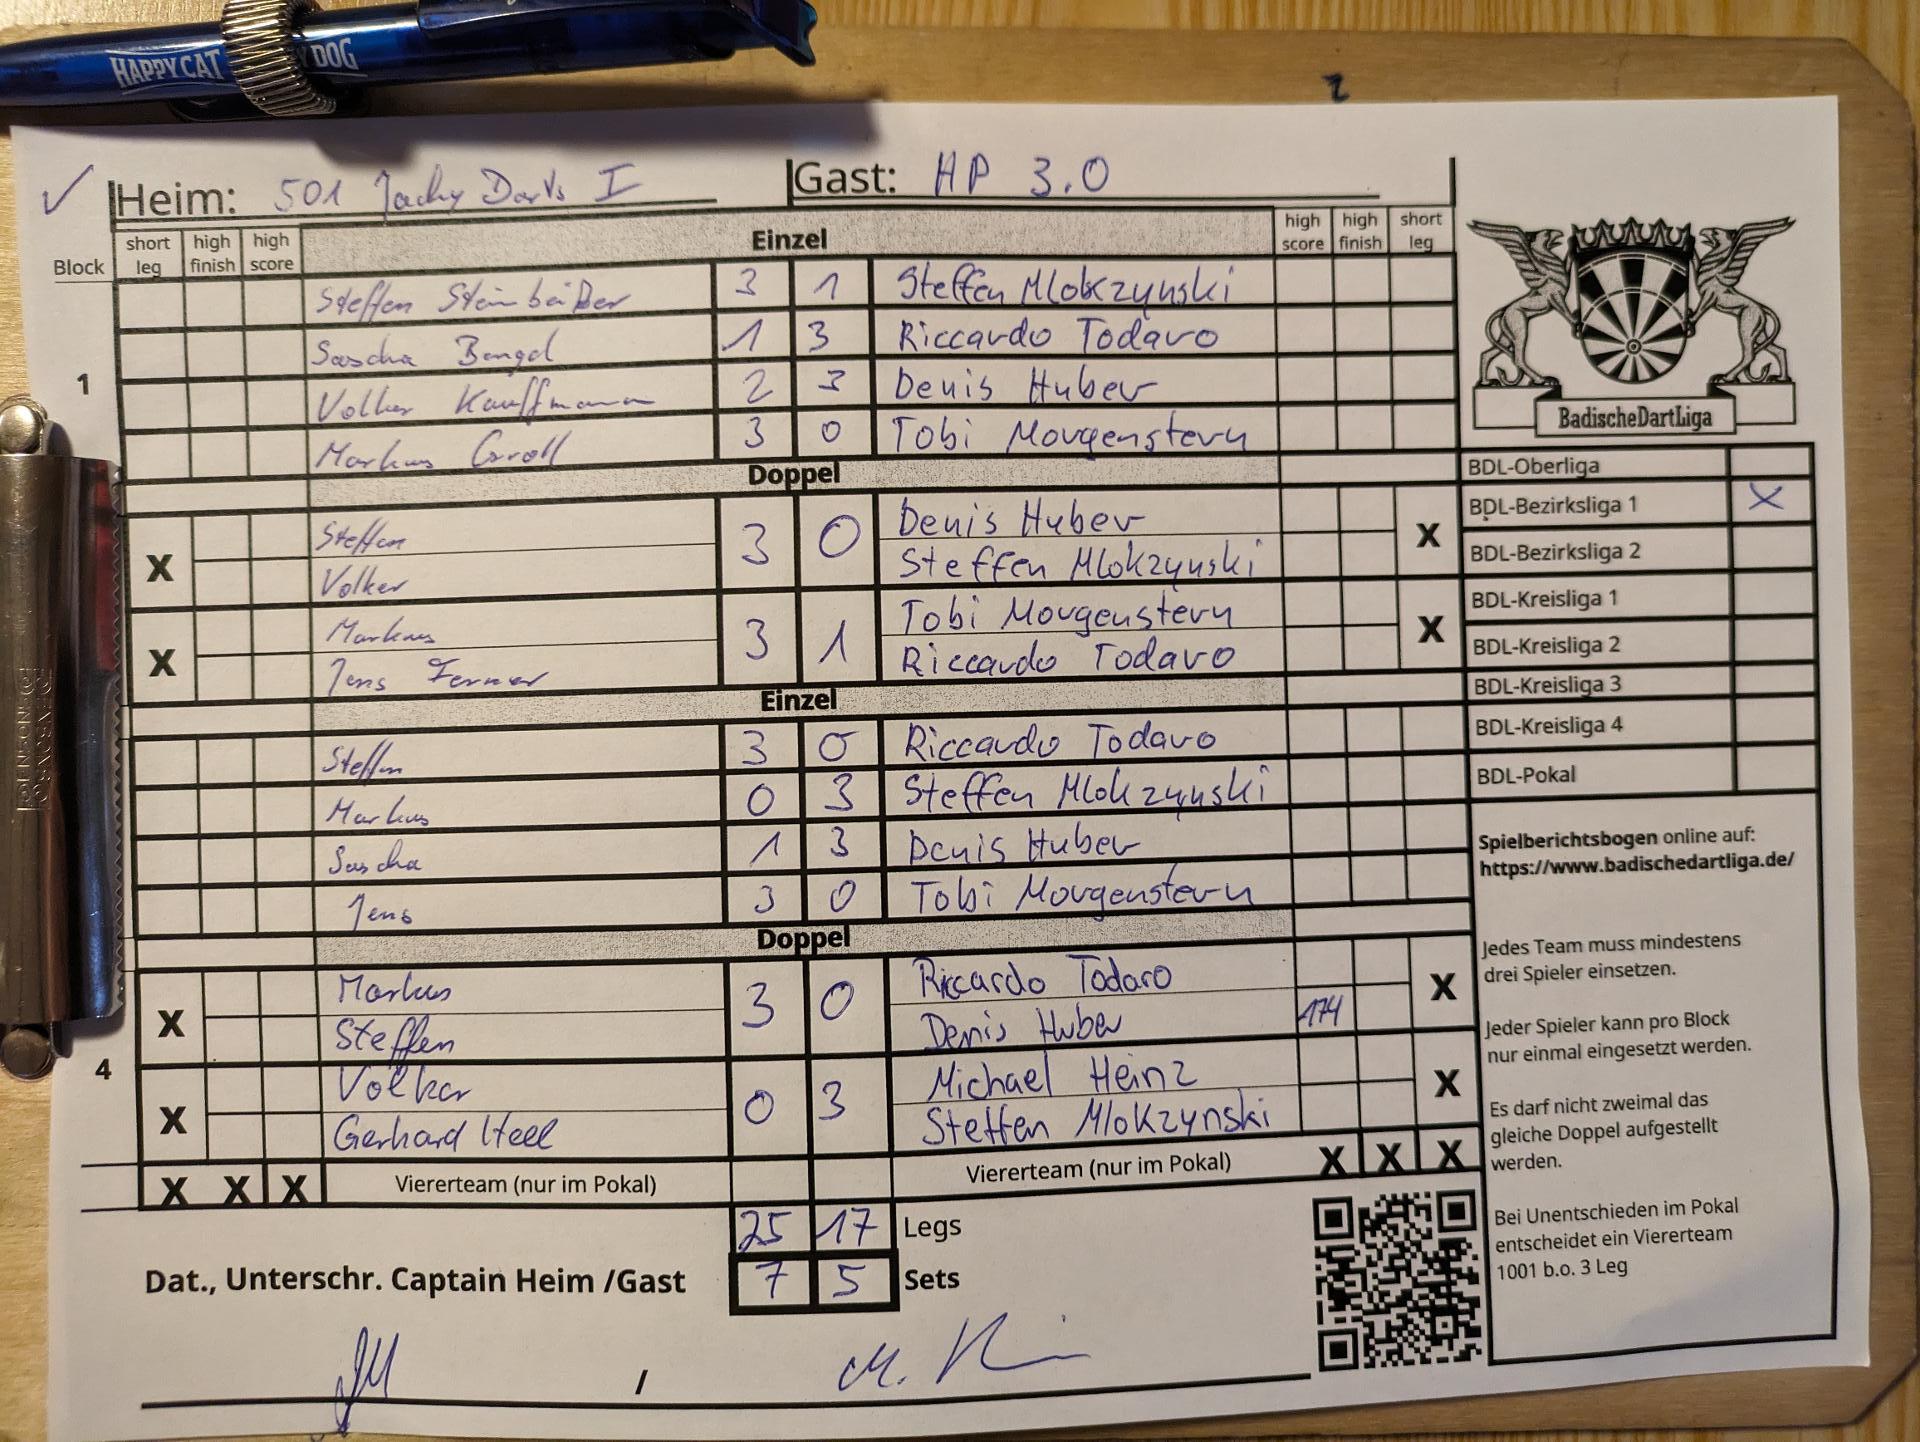 HAPPY CAT Y DOG
Heim: 501 Jacky Darts I Gast: HP 3.0
Block short leg high finish high score Einzel high score high finish short leg
1
Steffen Steinbeißer 3 1 Steffen Mlokzynski
Sascha Bengel 1 3 Riccardo Todaro
Volker Kauffmann 2 3 Denis Huber
Markus Groll 3 0 Tobi Morgenstern
Doppel
X Steffen 3 0 Denis Huber X
Volker Steffen Mlokzynski
X Markus 3 1 Tobi Morgenstern X
Jens Ferner Riccardo Todaro
Einzel
Steffen 3 0 Riccardo Todaro
Markus 0 3 Steffen Mlokzynski
Sascha 1 3 Denis Huber
Jens 3 0 Tobi Morgenstern
Doppel
4
X Markus 3 0 Riccardo Todaro X
Steffen Denis Huber 174
X Volker 0 3 Michael Heinz X
Gerhard Steffen Mlokzynski
X X X Viererteam (nur im Pokal) Viererteam (nur im Pokal) X X X
25 17 Legs
Dat., Unterschr. Captain Heim /Gast 7 5 Sets
/
BadischeDartLiga
BDL-Oberliga
BDL-Bezirksliga 1 X
BDL-Bezirksliga 2
BDL-Kreisliga 1
BDL-Kreisliga 2
BDL-Kreisliga 3
BDL-Kreisliga 4
BDL-Pokal
Spielberichtsbogen online auf:
https://www.badischedartliga.de/
Jedes Team muss mindestens
drei Spieler einsetzen.
Jeder Spieler kann pro Block
nur einmal eingesetzt werden.
Es darf nicht zweimal das
gleiche Doppel aufgestellt
werden.
Bei Unentschieden im Pokal
entscheidet ein Viererteam
1001 b.o. 3 Leg